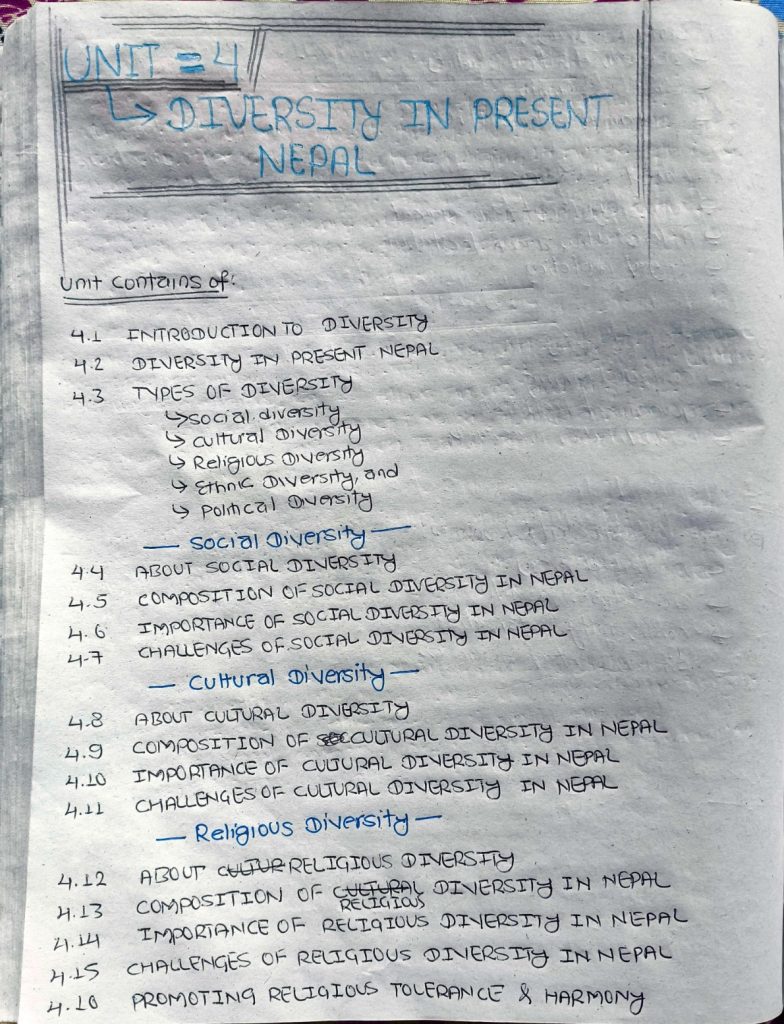 UNIT = 4
↳ DIVERSITY IN PRESENT
NEPAL
Unit contains of:
4.1 INTRODUCTION TO DIVERSITY
4.2 DIVERSITY IN PRESENT NEPAL
4.3 TYPES OF DIVERSITY
↳ social diversity
↳ cultural Diversity
↳ Religious Diversity
↳ Ethnic Diversity, and
↳ Political Diversity
— Social Diversity —
4.4 ABOUT SOCIAL DIVERSITY
4.5 COMPOSITION OF SOCIAL DIVERSITY IN NEPAL
4.6 IMPORTANCE OF SOCIAL DIVERSITY IN NEPAL
4.7 CHALLENGES OF SOCIAL DIVERSITY IN NEPAL
— Cultural Diversity —
4.8 ABOUT CULTURAL DIVERSITY
4.9 COMPOSITION OF CULTURAL DIVERSITY IN NEPAL
4.10 IMPORTANCE OF CULTURAL DIVERSITY IN NEPAL
4.11 CHALLENGES OF CULTURAL DIVERSITY IN NEPAL
— Religious Diversity —
4.12 ABOUT CULTUR RELIGIOUS DIVERSITY
4.13 COMPOSITION OF CULTURAL DIVERSITY IN NEPAL
RELIGIOUS
4.14 IMPORTANCE OF RELIGIOUS DIVERSITY IN NEPAL
4.15 CHALLENGES OF RELIGIOUS DIVERSITY IN NEPAL
4.16 PROMOTING RELIGIOUS TOLERANCE & HARMONY